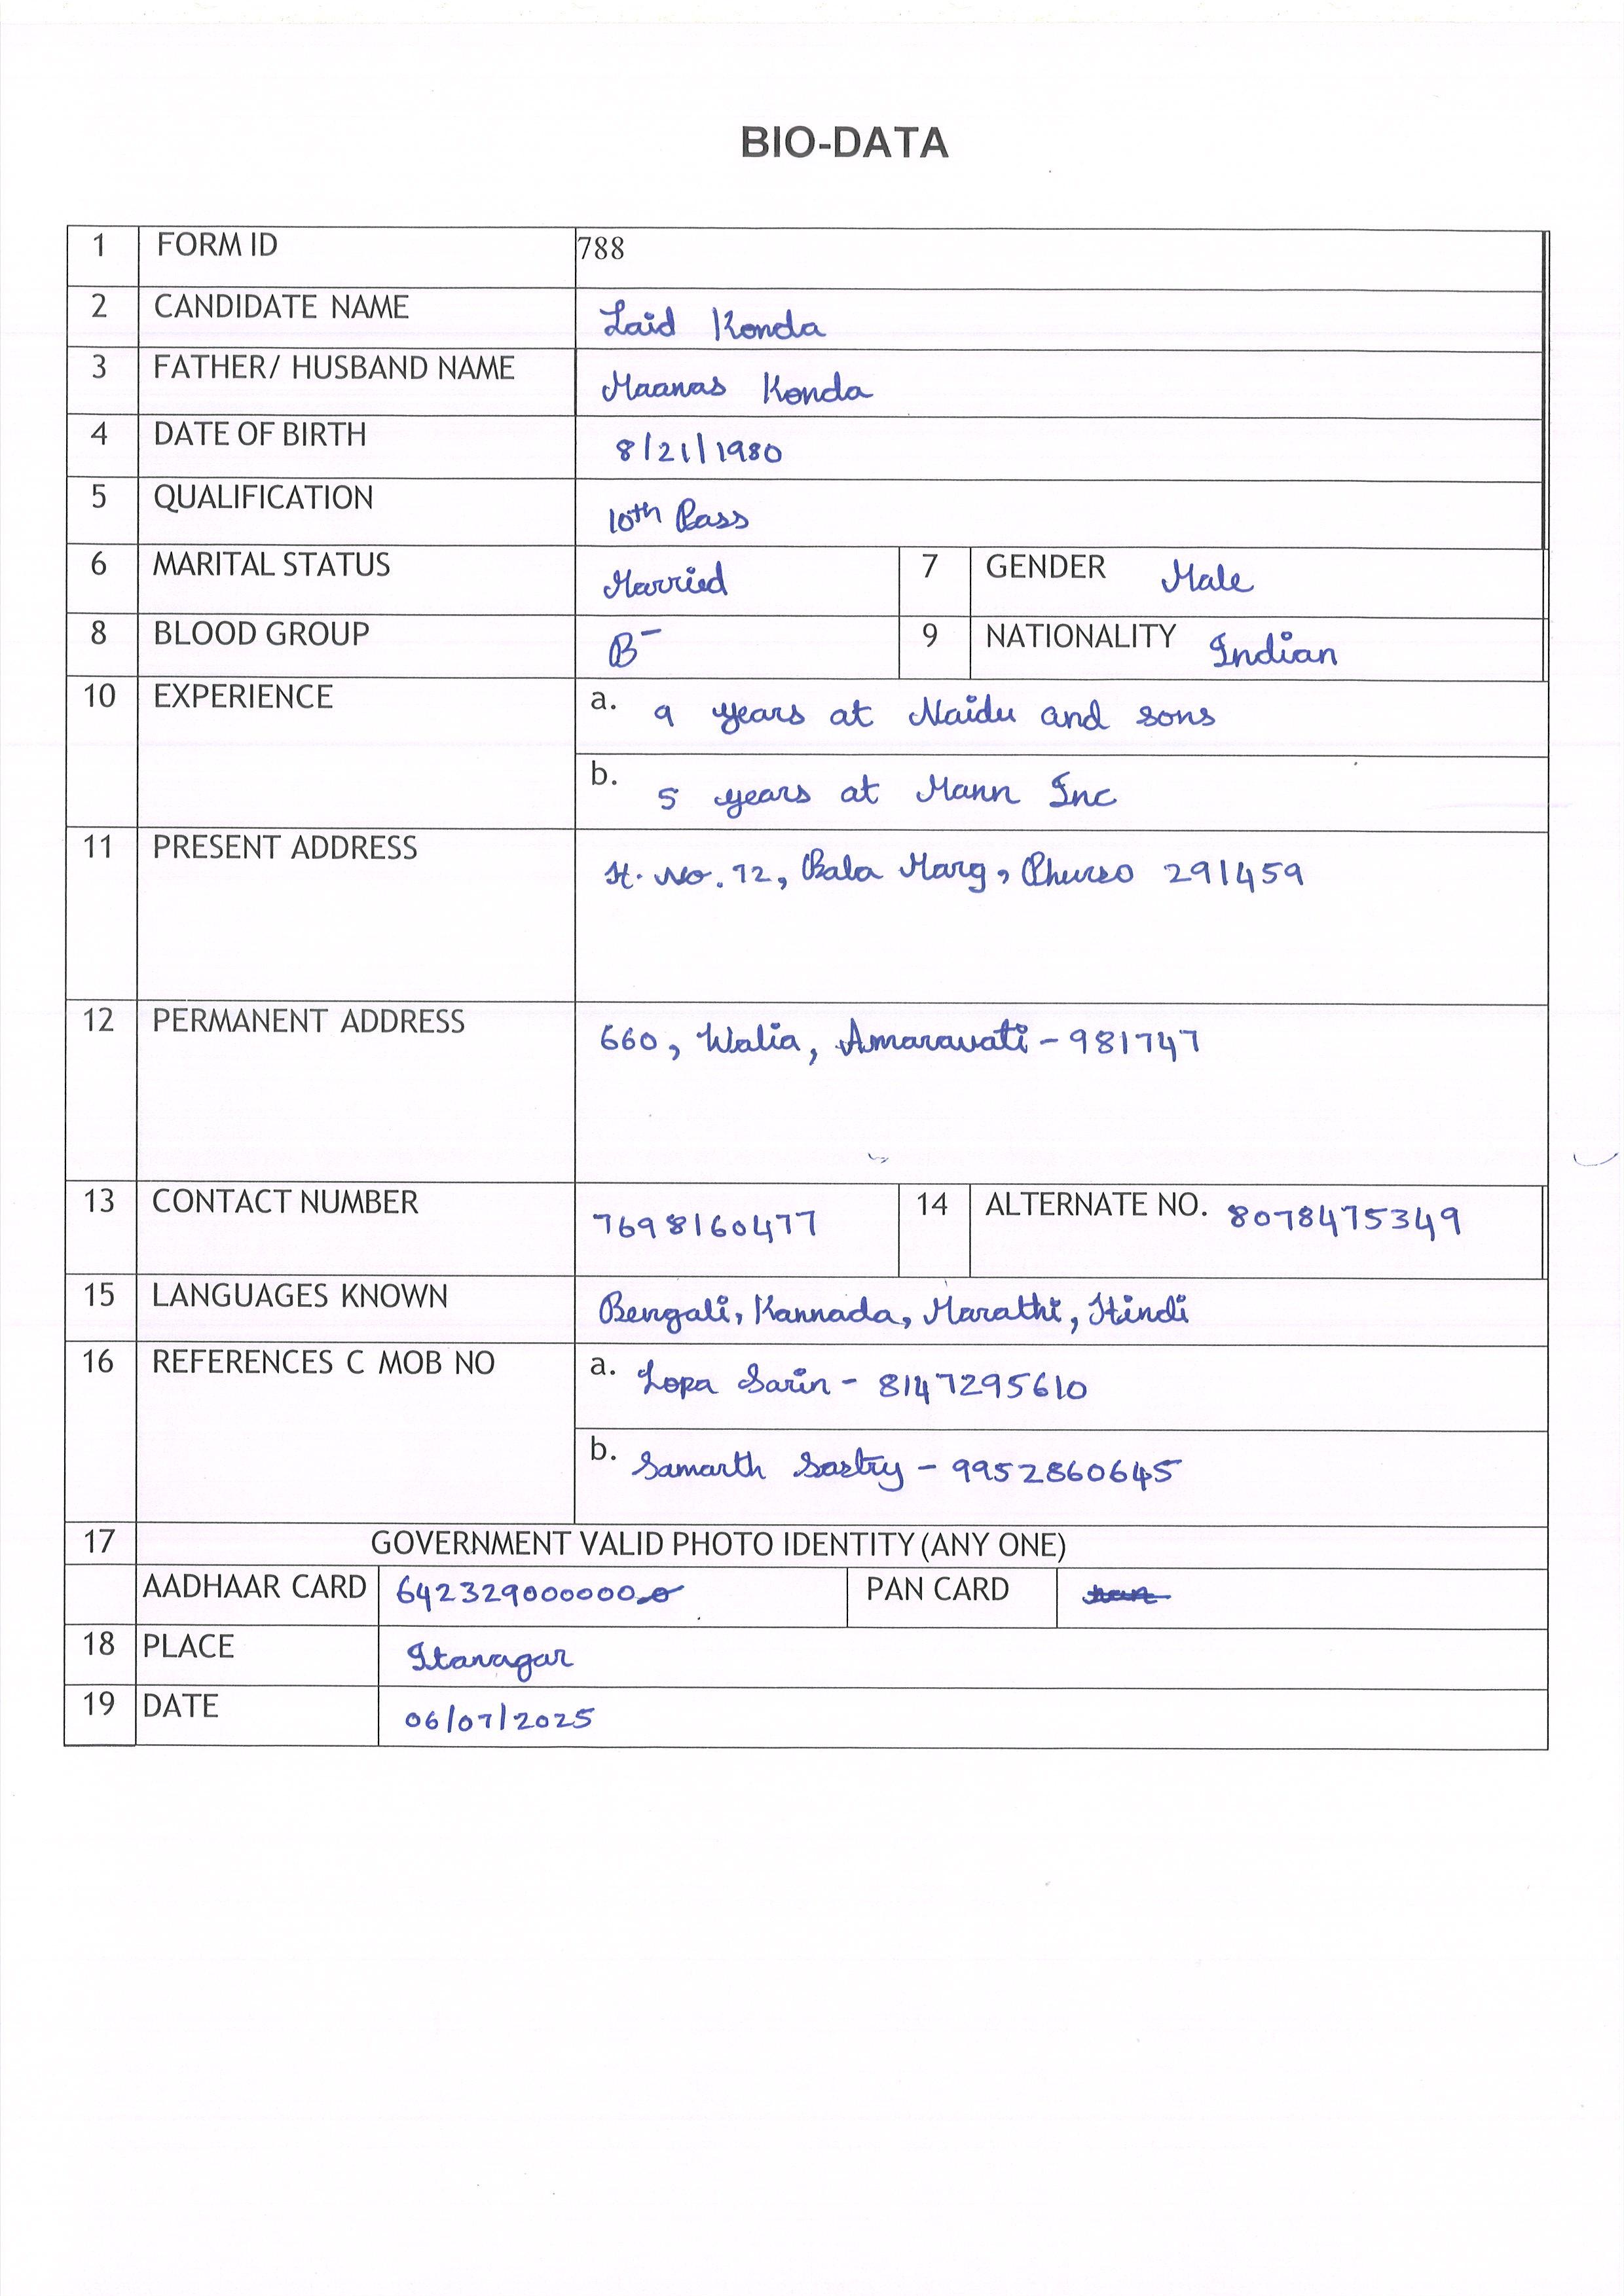 BIO-DATA
1 FORM ID 788
2 CANDIDATE NAME Laid Konda
3 FATHER/ HUSBAND NAME Maanas Konda
4 DATE OF BIRTH 8/21/1980
5 QUALIFICATION 10th Pass
6 MARITAL STATUS Married 7 GENDER Male
8 BLOOD GROUP B- 9 NATIONALITY Indian
10 EXPERIENCE a. 9 years at Naidu and sons
b. 5 years at Mann Inc
11 PRESENT ADDRESS H. No. 72, Bala Marg, 291459
12 PERMANENT ADDRESS 660, Walia, Amaravati - 981747
13 CONTACT NUMBER 7698160477 14 ALTERNATE NO. 8078475349
15 LANGUAGES KNOWN Bengali, Kannada, Marathi, Hindi
16 REFERENCES C MOB NO a. Lopa Sarin - 8147295610
b. Samarth Sastry - 9952860645
17 GOVERNMENT VALID PHOTO IDENTITY (ANY ONE)
AADHAAR CARD 642329000000 PAN CARD
18 PLACE Itanagar
19 DATE 06/07/2025